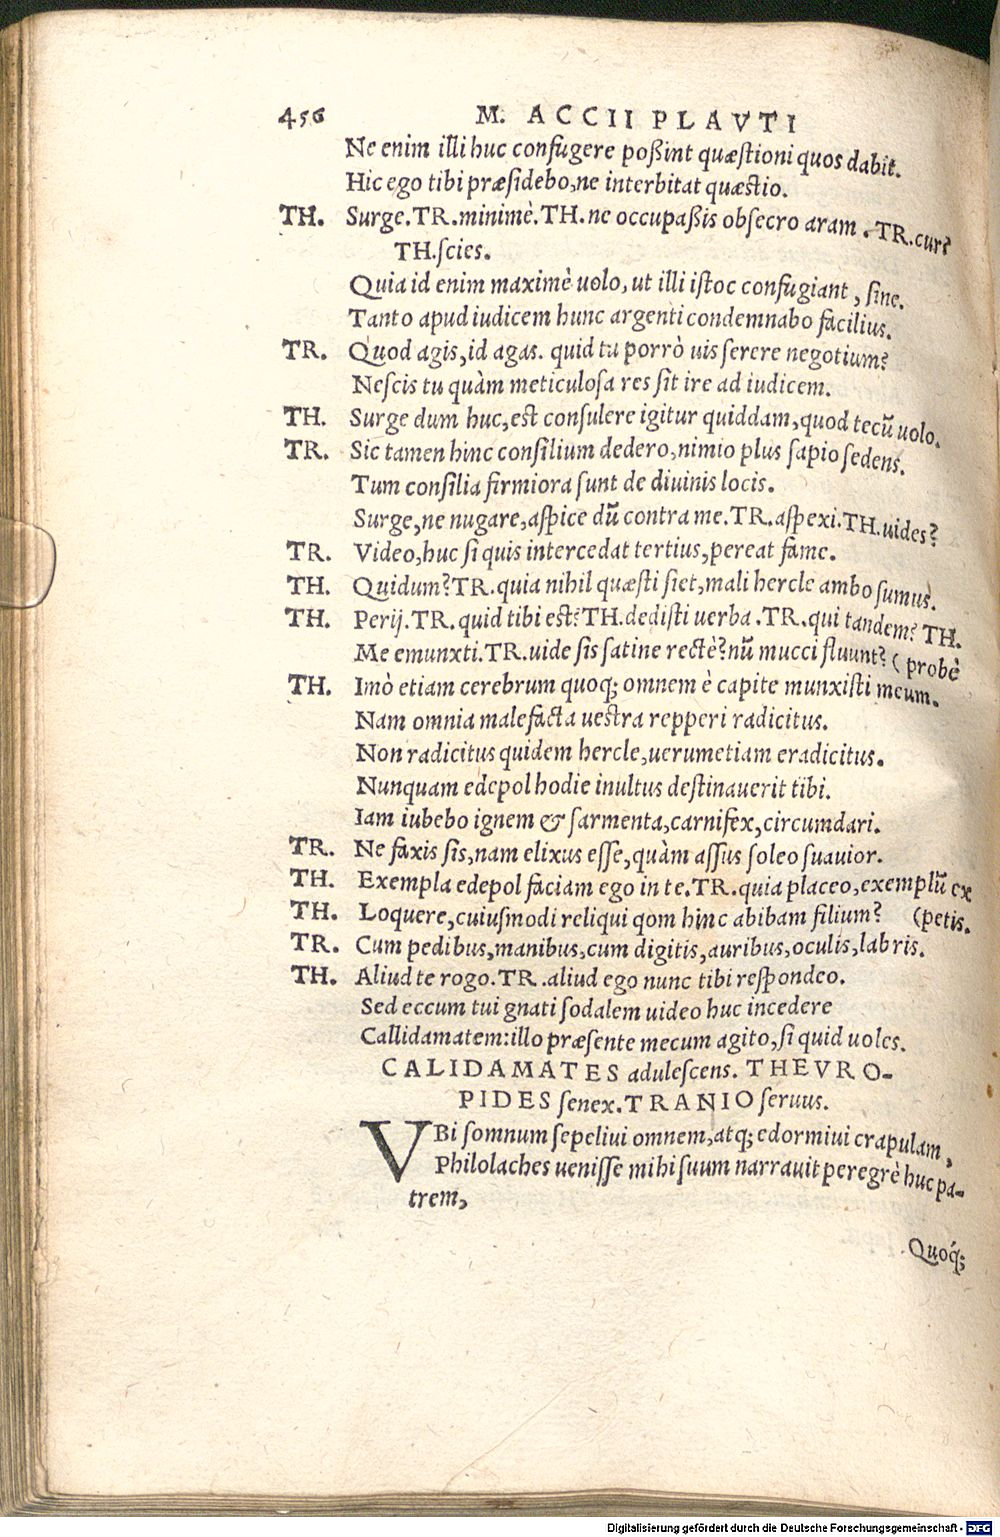 456 M. ACCII PLAVTI
Ne enim illi huc confugere poßint quæstioni quos dabit.
Hic ego tibi præsidebo, ne interbitat quæstio.
TH. Surge. TR. minimè. TH. ne occupaßis obsecro aram. TR. cur?
TH. scies.
Quia id enim maximè uolo, ut illi istoc confugiant, sine.
Tanto apud iudicem hunc argenti condemnabo facilius.
TR. Quod agis, id agas. quid tu porrò uis serere negotium?
Nescis tu quàm meticulosa res sit ire ad iudicem.
TH. Surge dum huc, est consulere igitur quiddam, quod tecũ uolo.
TR. Sic tamen hinc consilium dedero, nimio plus sapio sedens.
Tum consilia firmiora sunt de diuinis locis.
Surge, ne nugare, aspice dũ contra me. TR. aspexi. TH. uides?
TR. Video, huc si quis intercedat tertius, pereat fame.
TH. Quidum? TR. quia nihil quæsti siet, mali hercle ambo sumus.
TH. Perij. TR. quid tibi est? TH. dedisti uerba. TR. qui tandem? TH.
Me emunxti. TR. uide sis satine rectè? nũ mucci fluunt? (probè
TH. Imò etiam cerebrum quoq; omnem è capite munxisti meum.
Nam omnia malefacta uestra repperi radicitus.
Non radicitus quidem hercle, uerumetiam eradicitus.
Nunquam edepol hodie inultus destinauerit tibi.
Iam iubebo ignem & sarmenta, carnifex, circumdari.
TR. Ne faxis sis, nam elixus esse, quàm assus soleo suauior.
TH. Exempla edepol faciam ego in te. TR. quia placeo, exemplũ ex
TH. Loquere, cuiusmodi reliqui qom hinc abibam filium? (petis.
TR. Cum pedibus, manibus, cum digitis, auribus, oculis, labris.
TH. Aliud te rogo. TR. aliud ego nunc tibi respondeo.
Sed eccum tui gnati sodalem uideo huc incedere
Callidamatem: illo præsente mecum agito, si quid uoles.
CALIDAMATES adulescens. THEVRO-
PIDES senex. TRANIO seruus.
VBi somnum sepeliui omnem, atq; edormiui crapulam,
Philolaches uenisse mihi suum narrauit peregrè huc pa-
trem,
Quoq́;
Digitalisierung gefördert durch die Deutsche Forschungsgemeinschaft - DFG